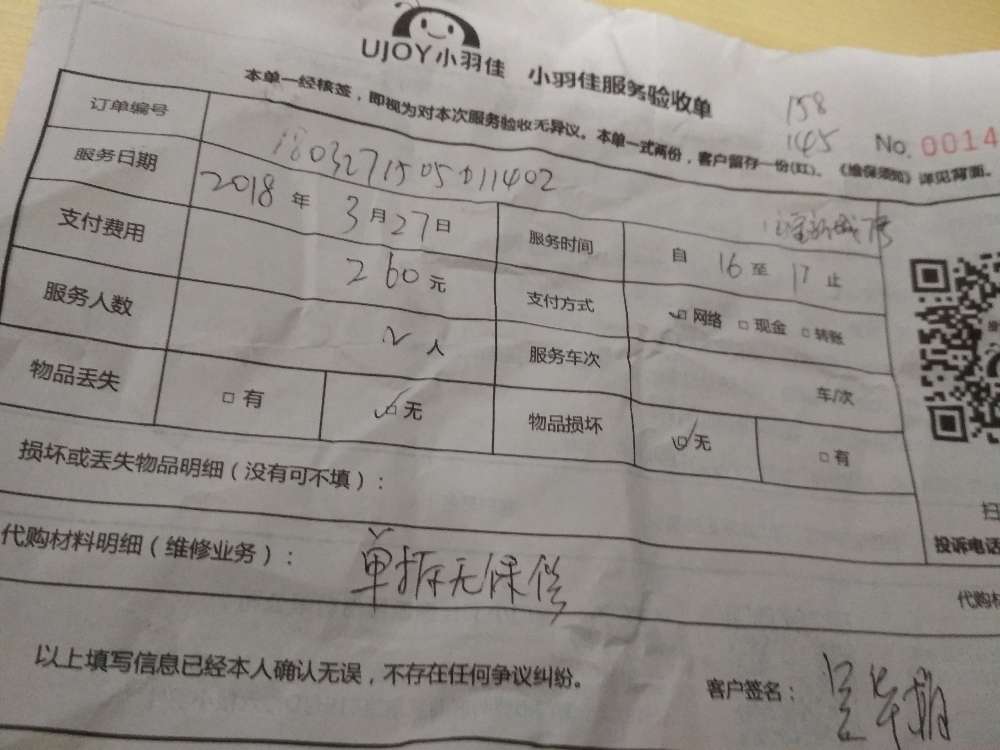 UJOY小羽佳 小羽佳服务验收单
158
1145
No. 0014
本单一经核签，即视为对本次服务验收无异议。本单一式两份，客户留存一份(红)。《维保须知》详见背面。
订单编号 18032715051011402
服务日期 2018年3月27日 服务时间 自16至17止
支付费用 260元 支付方式 网络 现金 转账
服务人数 2人 服务车次 车/次
物品丢失 有 无 物品损坏 无 有
损坏或丢失物品明细（没有可不填）：
扫
投诉电话
代购材料明细（维修业务）： 单拆无保修
代购材
以上填写信息已经本人确认无误，不存在任何争议纠纷。 客户签名：